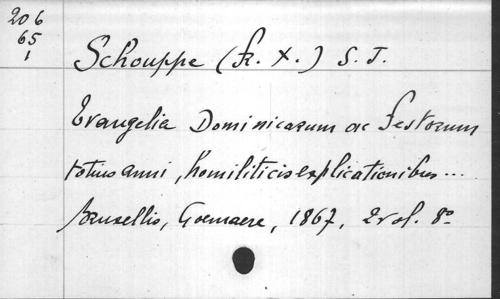 206
65
1
Schouppe (fr. X.) S. J.
Evangelia Dominicarum ac festorum
totius anni, homiliticis explicationibus...
Bruxellis, Goemaere, 1867, 2 vol. 8°